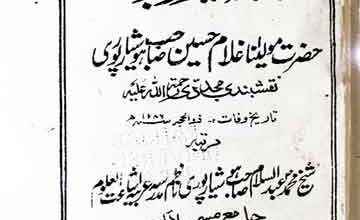 حضرت مولینا غلام حسین صاحب ہوشیارپوری
نقشبندی مجددی رحمۃ اللہ علیہ
تاریخ وفات ۔ ذوالحجہ
مرتبہ
شیخ محمد عبدالسلام صاحب ہوشیارپوری ناظم مدرسہ عربیہ اشاعت العلوم
جامع مسجد